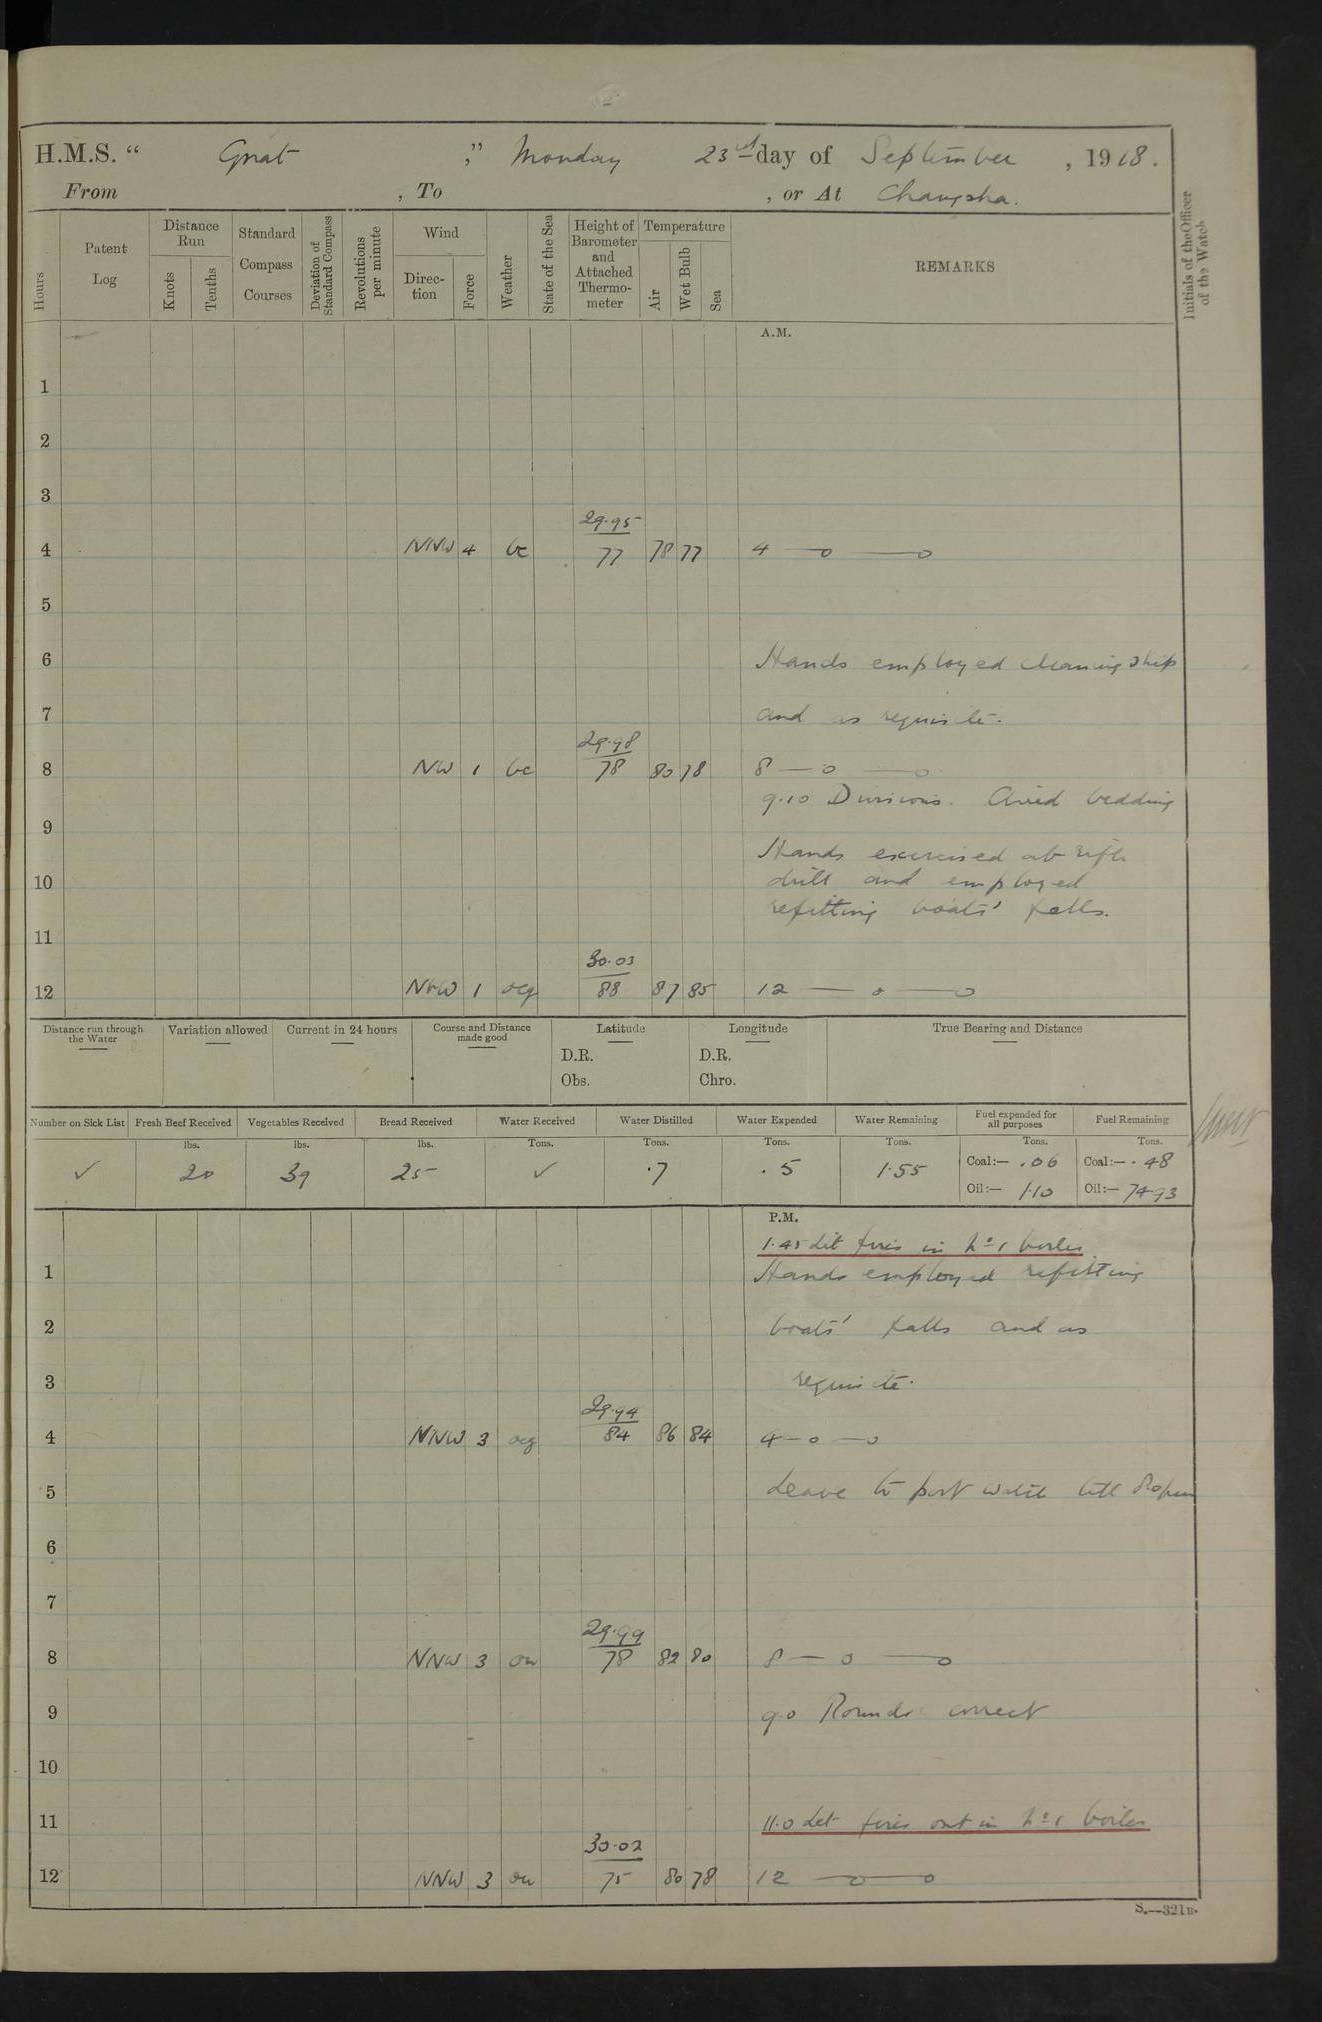 H.M.S. “ Gnat ,” Monday 23rd day of September , 1918.
From , To , or At Changsha.
Hours
Patent Log
Distance Run
Knots
Tenths
Standard Compass Courses
Deviation of Standard Compass
Revolutions per minute
Wind
Direction
Force
Weather
State of the Sea
Height of Barometer and Attached Thermometer
Temperature
Air
Wet Bulb
Sea
REMARKS
Initials of the Officer of the Watch
A.M.
1
2
3
29.95
4 NNW 4 bc 77 78 77 4 —o —o
5
6 Hands employed cleaning ship
7 and as requisite.
29.98
8 NW 1 bc 78 80 78 8 —o —o
9.10 Divisions. Aired bedding
9
Hands exercised at rifle
10 drill and employed
refitting boats' falls.
11
30.03
12 NbW 1 ocg 88 87 85 12 — o —o
Distance run through the Water
Variation allowed
Current in 24 hours
Course and Distance made good
Latitude
D.R.
Obs.
Longitude
D.R.
Chro.
True Bearing and Distance
Number on Sick List Fresh Beef Received Vegetables Received Bread Received Water Received Water Distilled Water Expended Water Remaining Fuel expended for all purposes Fuel Remaining
lbs. lbs. lbs. Tons. Tons. Tons. Tons. Tons. Tons.
✓ 20 39 25 ✓ .7 .5 1.55 Coal:— .06 Coal:— .48
Oil:— 1.10 Oil:— 74.93
P.M.
1.45 Lit fires in No 1 boiler
1 Hands employed refitting
2 boats' falls and as
3 requisite.
29.94
4 NNW 3 ocg 84 86 84 4 —o —o
5 Leave to port watch till
6
7
29.99
8 NNW 3 ou 78 82 80 8 — o —o
9 9.0 Rounds correct
10
11 11.0 Let fires out in No 1 boiler
30.02
12 NNW 3 ou 75 80 78 12 —o —o
S.—321B.